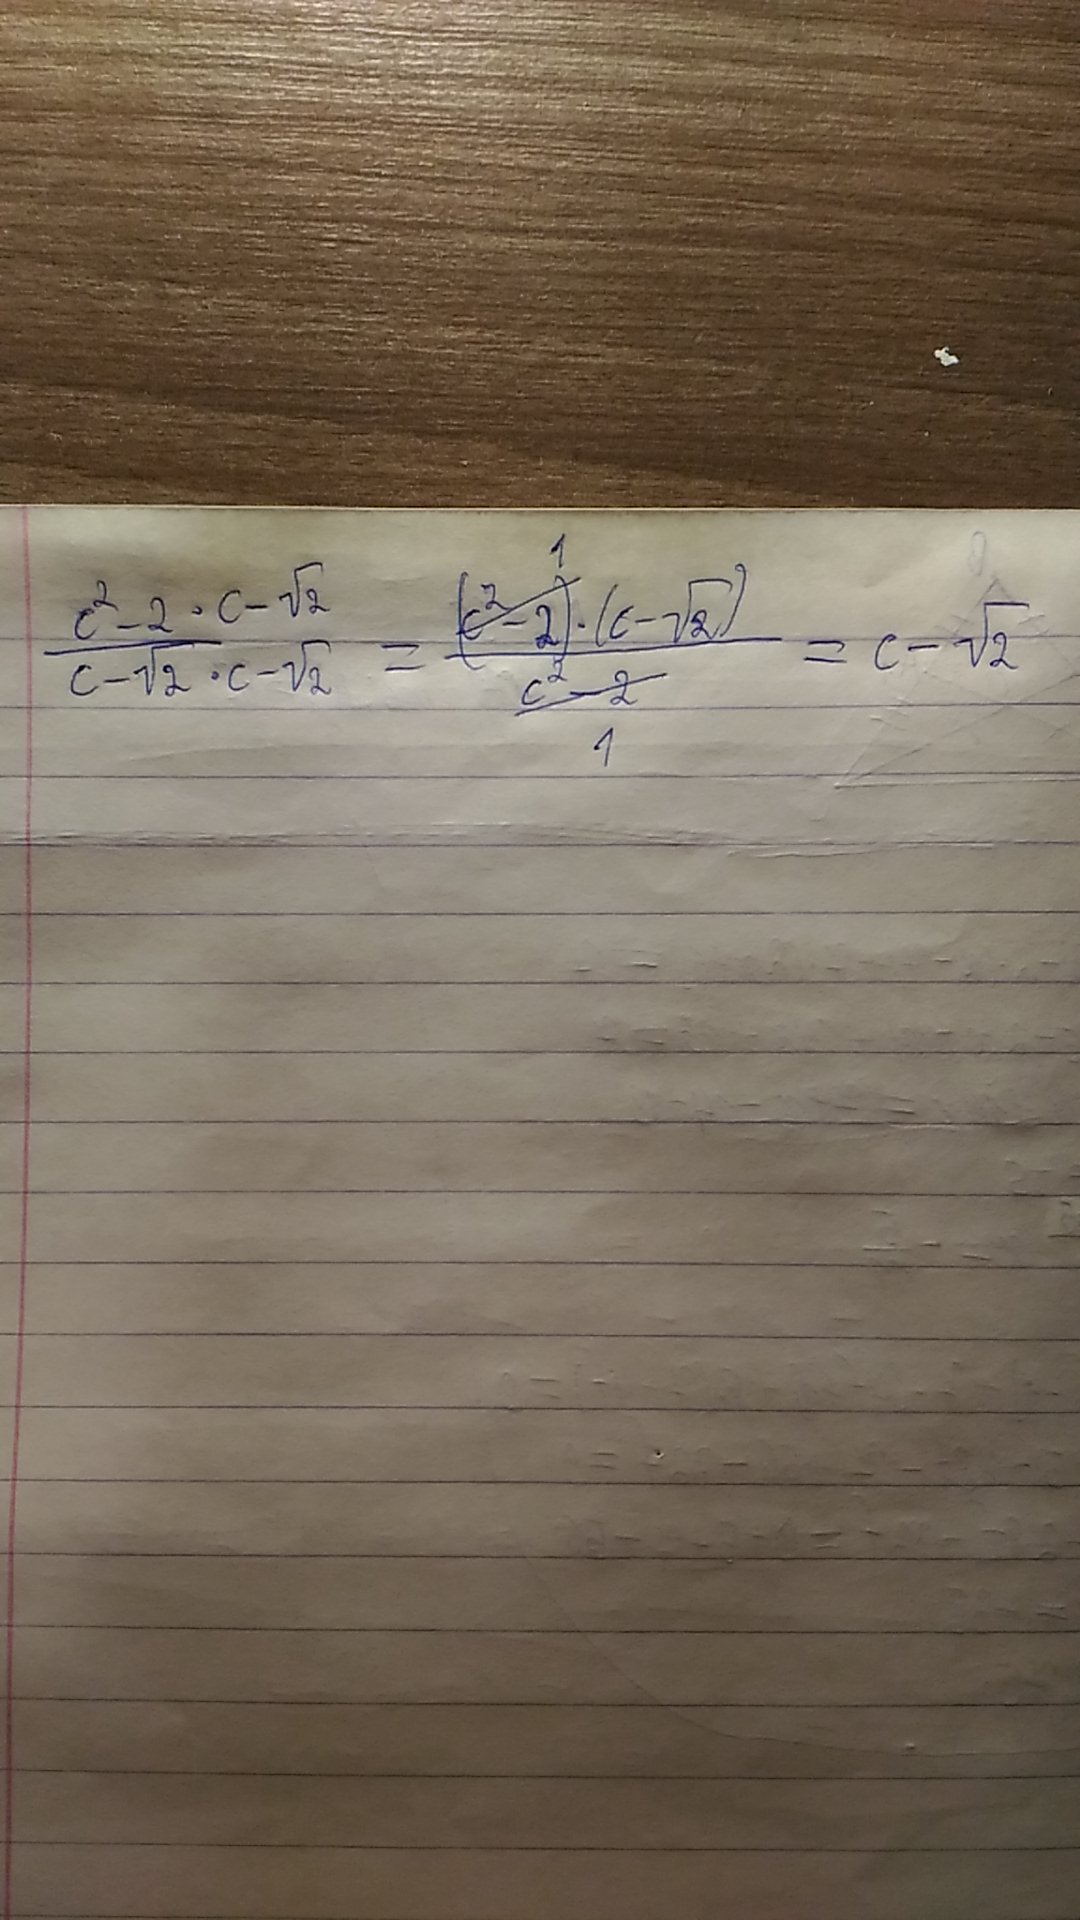 c²-2·c-√2 / c-√2·c-√2 = (c²-2)¹·(c-√2) / c²-2 1 = c-√2